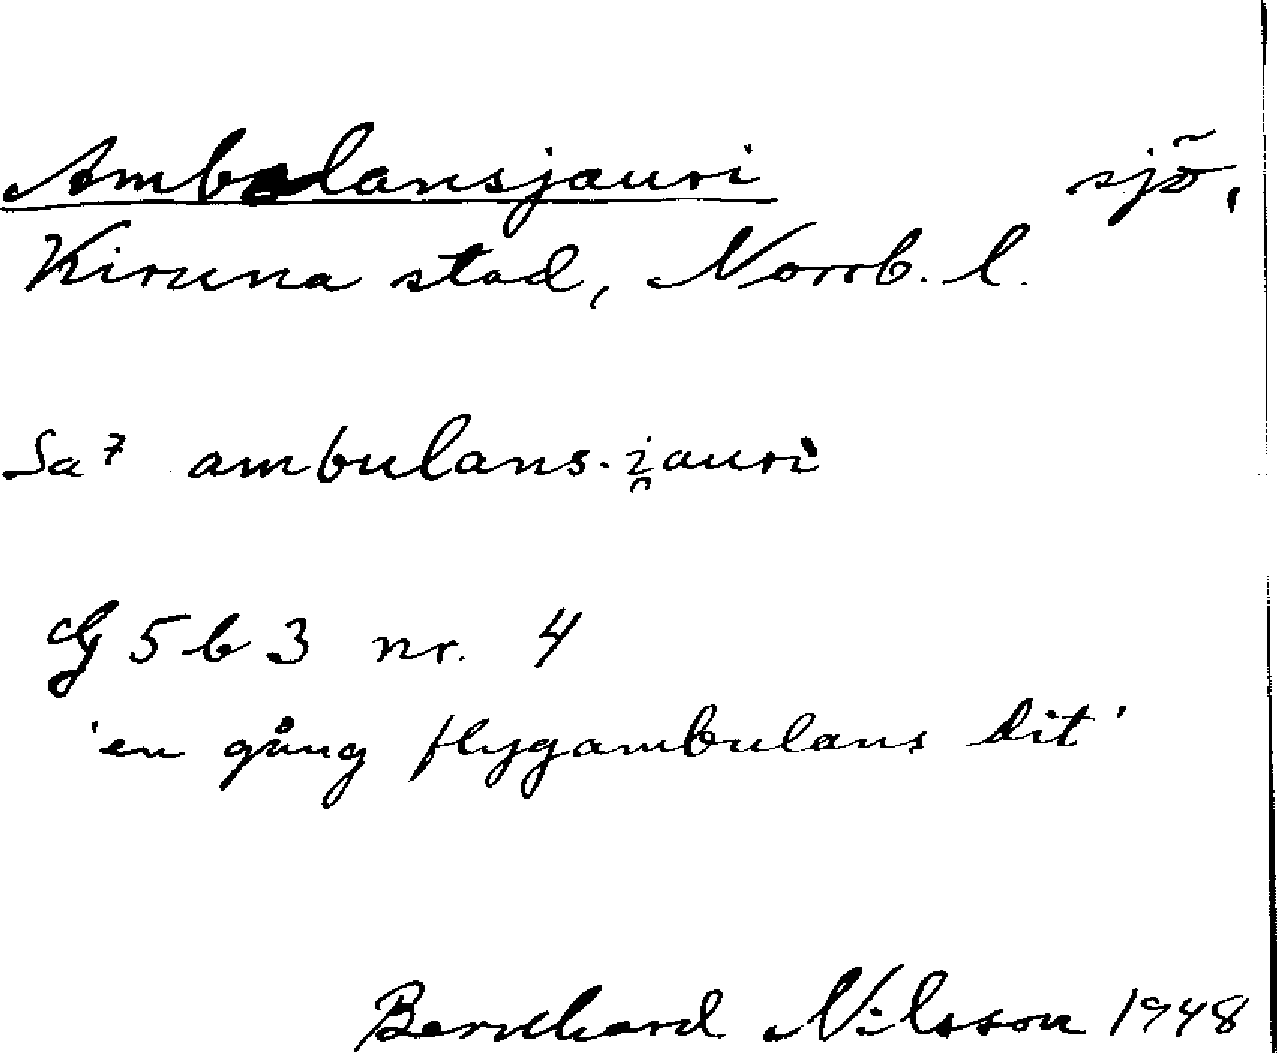 Ambulansjauri sjö,
Kiruna stad, Norrb. l.
Sa⁷ ambulans-i̯auri
G 5 b 3 nr. 4
'en gång flygambulans dit'
Bernhard Nilsson 1948